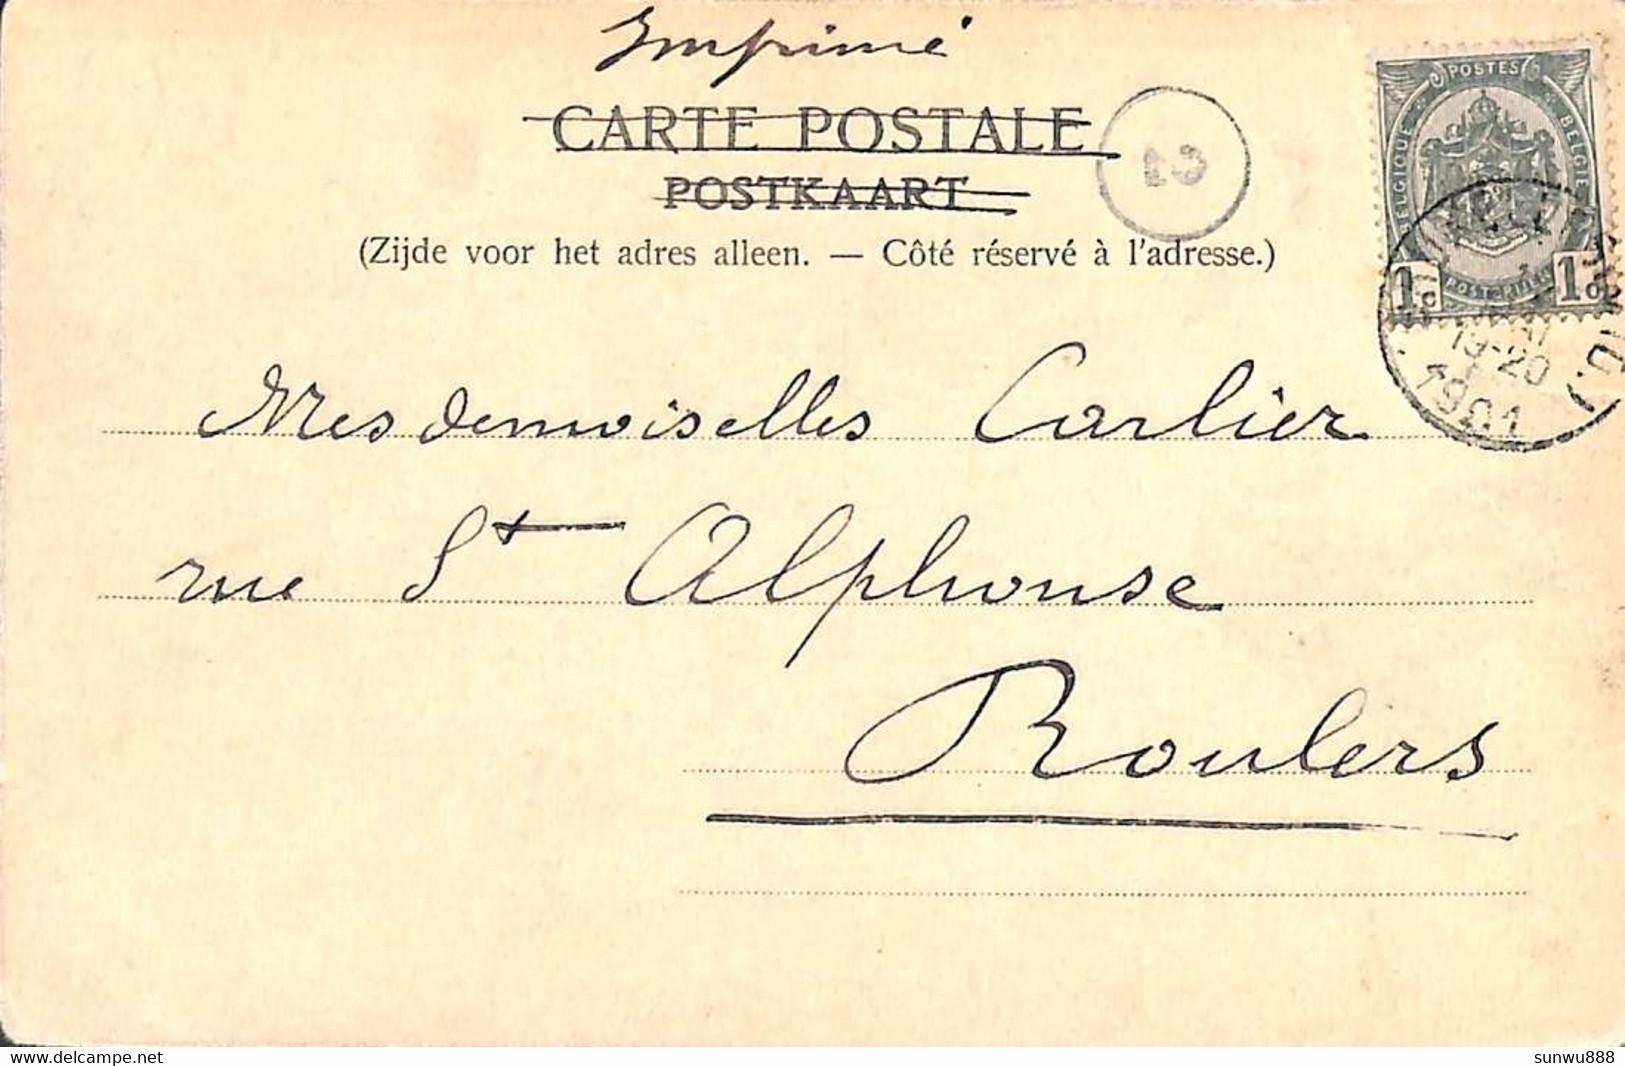 Imprimé
CARTE POSTALE
POSTKAART
(Zijde voor het adres alleen. — Côté réservé à l'adresse.)
POSTES
BELGIQUE
BELGIE
POSTERIJEN
1c 1c
19-20
1901
Mesdemoiselles Carlier
rue St Alphonse
Roulers
https://www.delcampe.net
sunwu888